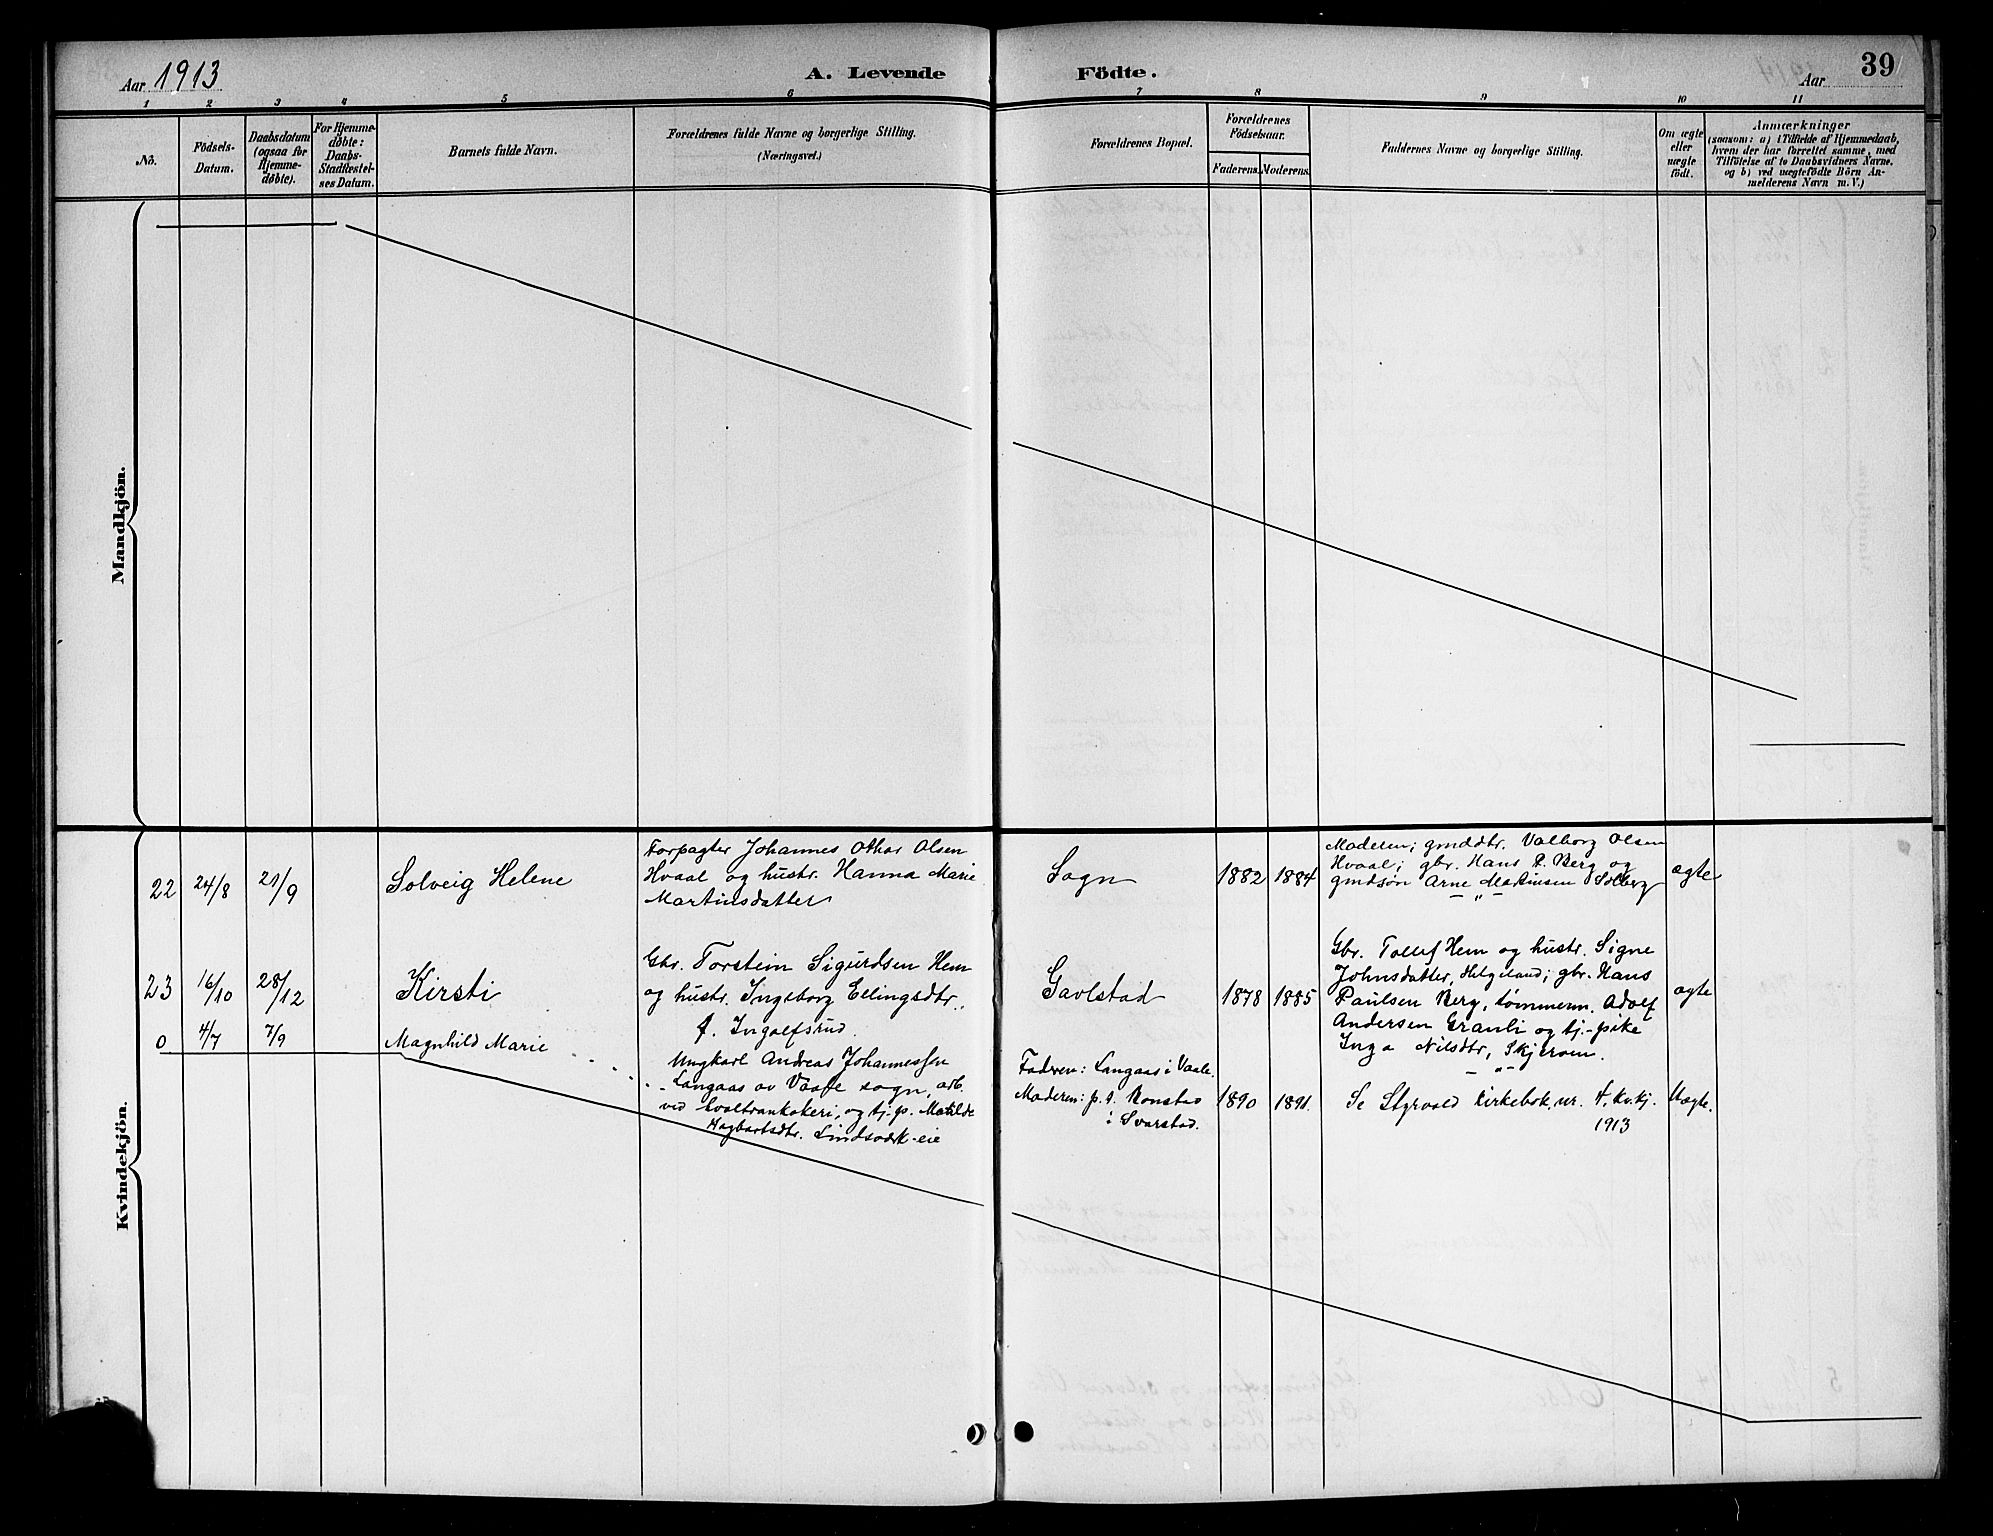 Aar 1913
A. Levende
Födte.
Aar
39
1 2 3 4 5 6 7 8 9 10 11
No.
Födsels-
Datum.
Daabsdatum
(ogsaa for
Hjemme-
døbte).
For Hjemme-
døbte:
Daabs-
Stadfæstel-
ses Datum.
Barnets fulde Navn.
Forældrenes fulde Navne og borgerlige Stilling.
(Næringsvei.)
Forældrenes Bopæl.
Forældrenes
Födselsaar.
Faderens. Moderens.
Faddernes Navne og borgerlige Stilling.
Om ægte
eller
uægte
födt.
Anmærkninger
(saasom: a) i Tilfælde af Hjemmedaab,
hvem der har forrettet samme, med
Tilföielse af to Daabsvidners Navne,
og b) ved uægtefødte Börn An-
melderens Navn m. V.)
Mandkjön.
Kvindekjön.
22 24/8 21/9 Solveig Helene
Forpagter Johannes Othar Olsen
Hvaal og hustr. Hanna Marie
Martinsdatter
Sogn 1882 1884
Moderen; gmddtr. Valborg Olsen
Hvaal; gbr. Hans P. Berg og
gmdsøn Arne Martinsen Solberg
— „ —
ægte
23 16/10 28/12 Kirsti
Gbr. Torstein Sigurdsen Hem
og hustr. Ingeborg Ellingsdtr.
f. Ingolfsrud.
Gavlstad 1878 1885
Gbr. Tollef Hem og hustr. Signe
Johnsdatter, Helgeland; gbr. Hans
Paulsen Berg, tømmerm. Adolf
Andersen Granli og tj.-pike
Inga Nilsdtr, Skjeraen.
— „ —
ægte
0 4/7 7/9 Magnhild Marie
Ungkarl Andreas Johannessen
Langaas av Vaale sogn, arb.
ved hvaltrankokeri, og tj.p. Matilde
Hagbartsdtr. Lindsværk-eie
Faderen: Langaas i Vaale.
Moderen: p. t. Ronstad
i Svarstad.
1890 1891.
Se Styrvold kirkebok, nr. 4, kv.kj.
1913
Uægte.